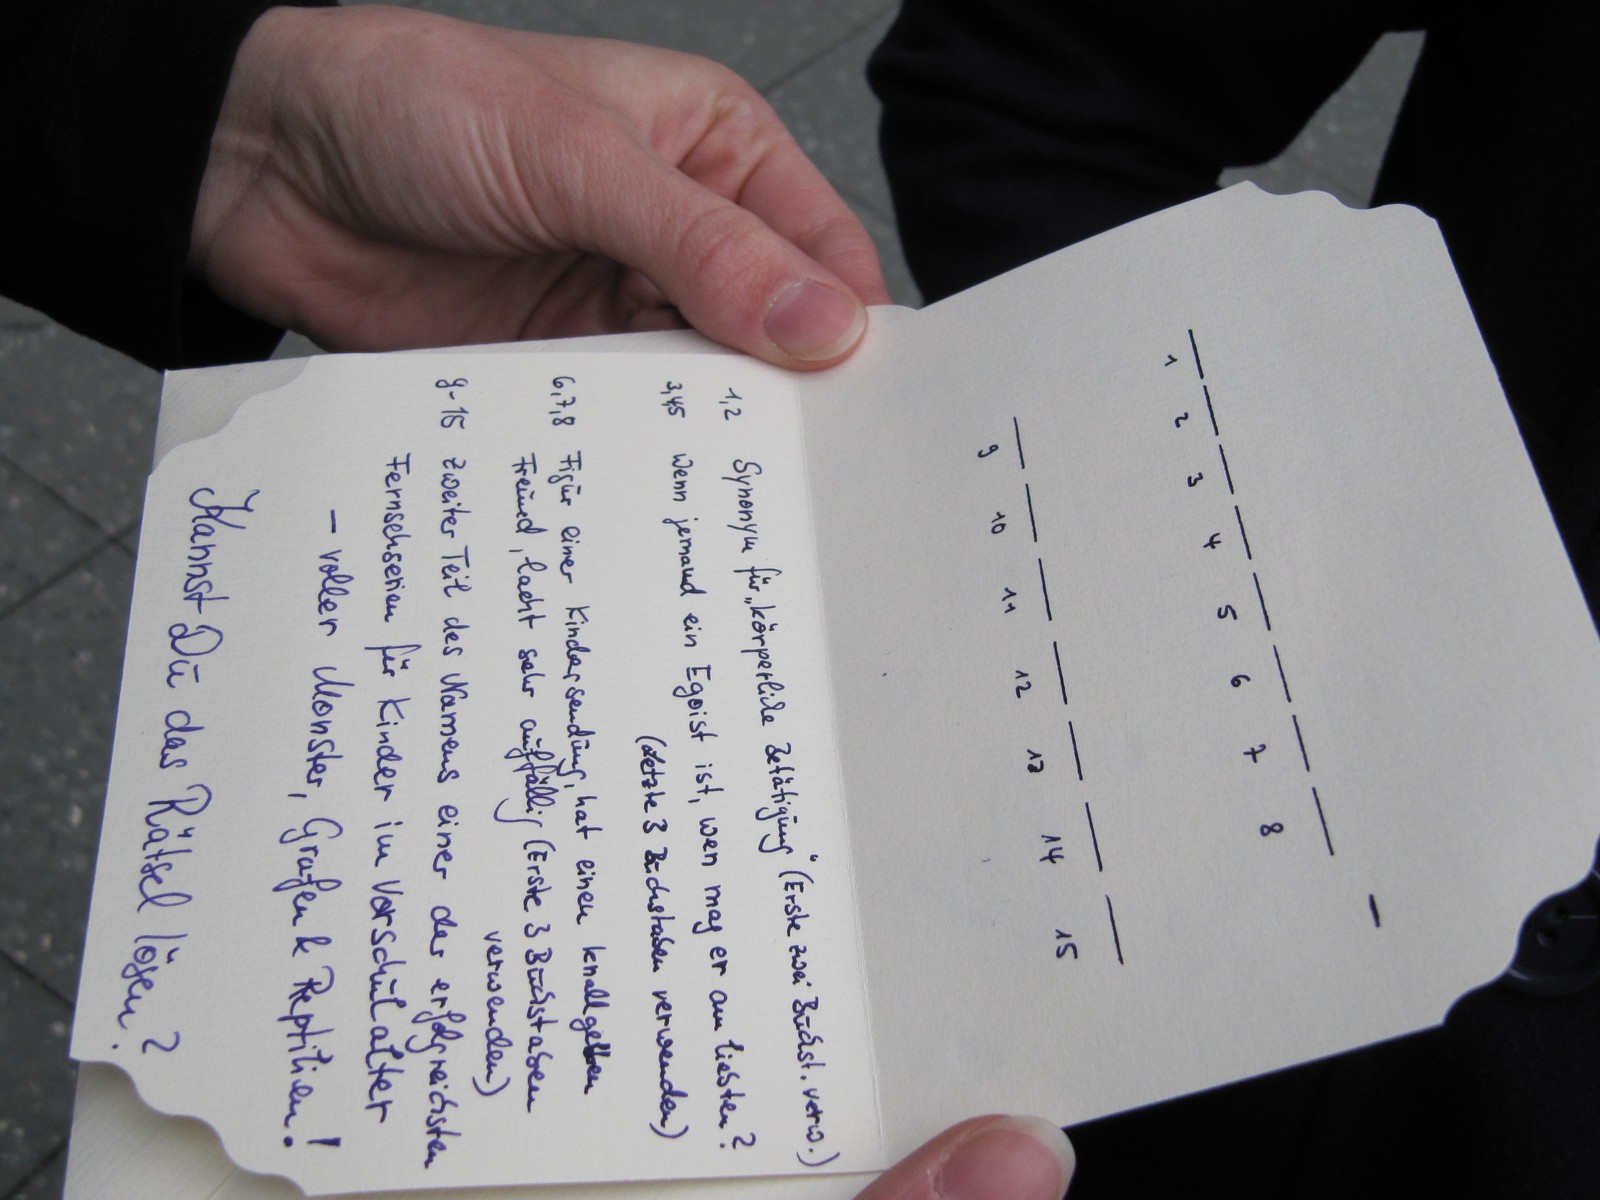 1 2 3 4 5 6 7 8 –
9 10 11 12 13 14 15
1,2 Synonym für „körperliche Betätigung“ (Erste zwei Buchst. verw.)
3,4,5 Wenn jemand ein Egoist ist, wen mag er am liebsten?
(Letzte 3 Buchstaben verwenden)
6,7,8 Figur einer Kindersendung, hat einen knallgelben
Freund, lacht sehr auffällig (Erste 3 Buchstaben
verwenden)
9-15 Zweiter Teil des Namens einer der erfolgreichsten
Fernsehserien für Kinder im Vorschulalter
– voller Monster, Grafen & Reptilien!
Kannst Du das Rätsel lösen?